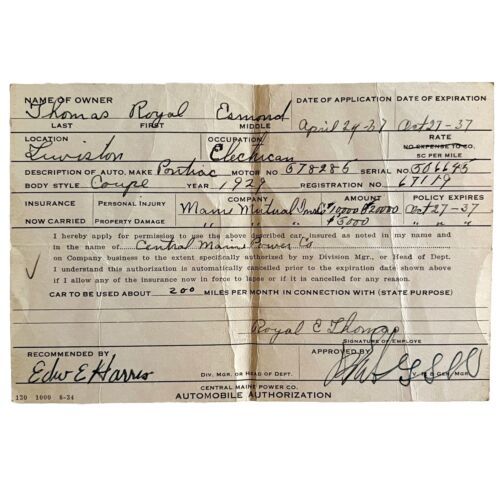 NAME OF OWNER Thomas Royal Esmond DATE OF APPLICATION DATE OF EXPIRATION
LAST FIRST MIDDLE April 29-37 Oct 27-37
LOCATION OCCUPATION RATE
Lewiston Electrican NO EXPENSE TO CO.
5C PER MILE
DESCRIPTION OF AUTO. MAKE Pontiac MOTOR NO 578285 SERIAL NO 506645
BODY STYLE Coupe YEAR 1929 REGISTRATION NO. 67119
INSURANCE Personal Injury COMPANY AMOUNT POLICY EXPIRES
Maine Mutual Ins. $10000 $20000 Oct 27-37
NOW CARRIED Property Damage " " " $5000 " " "
I hereby apply for permission to use the above described car, insured as noted in my name and
in the name of Central Maine Power Co
on Company business to the extent specifically authorized by my Division Mgr., or Head of Dept.
I understand this authorization is automatically cancelled prior to the expiration date shown above
if I allow any of the insurance now in force to lapse or if it is cancelled for any reason.
CAR TO BE USED ABOUT 200 MILES PER MONTH IN CONNECTION WITH (STATE PURPOSE)
Royal E Thomas
SIGNATURE OF EMPLOYE
RECOMMENDED BY APPROVED BY
Edw E Harris
DIV. MGR. OR HEAD OF DEPT. V. P. & GEN. MGR.
CENTRAL MAINE POWER CO.
130 1000 8-34 AUTOMOBILE AUTHORIZATION